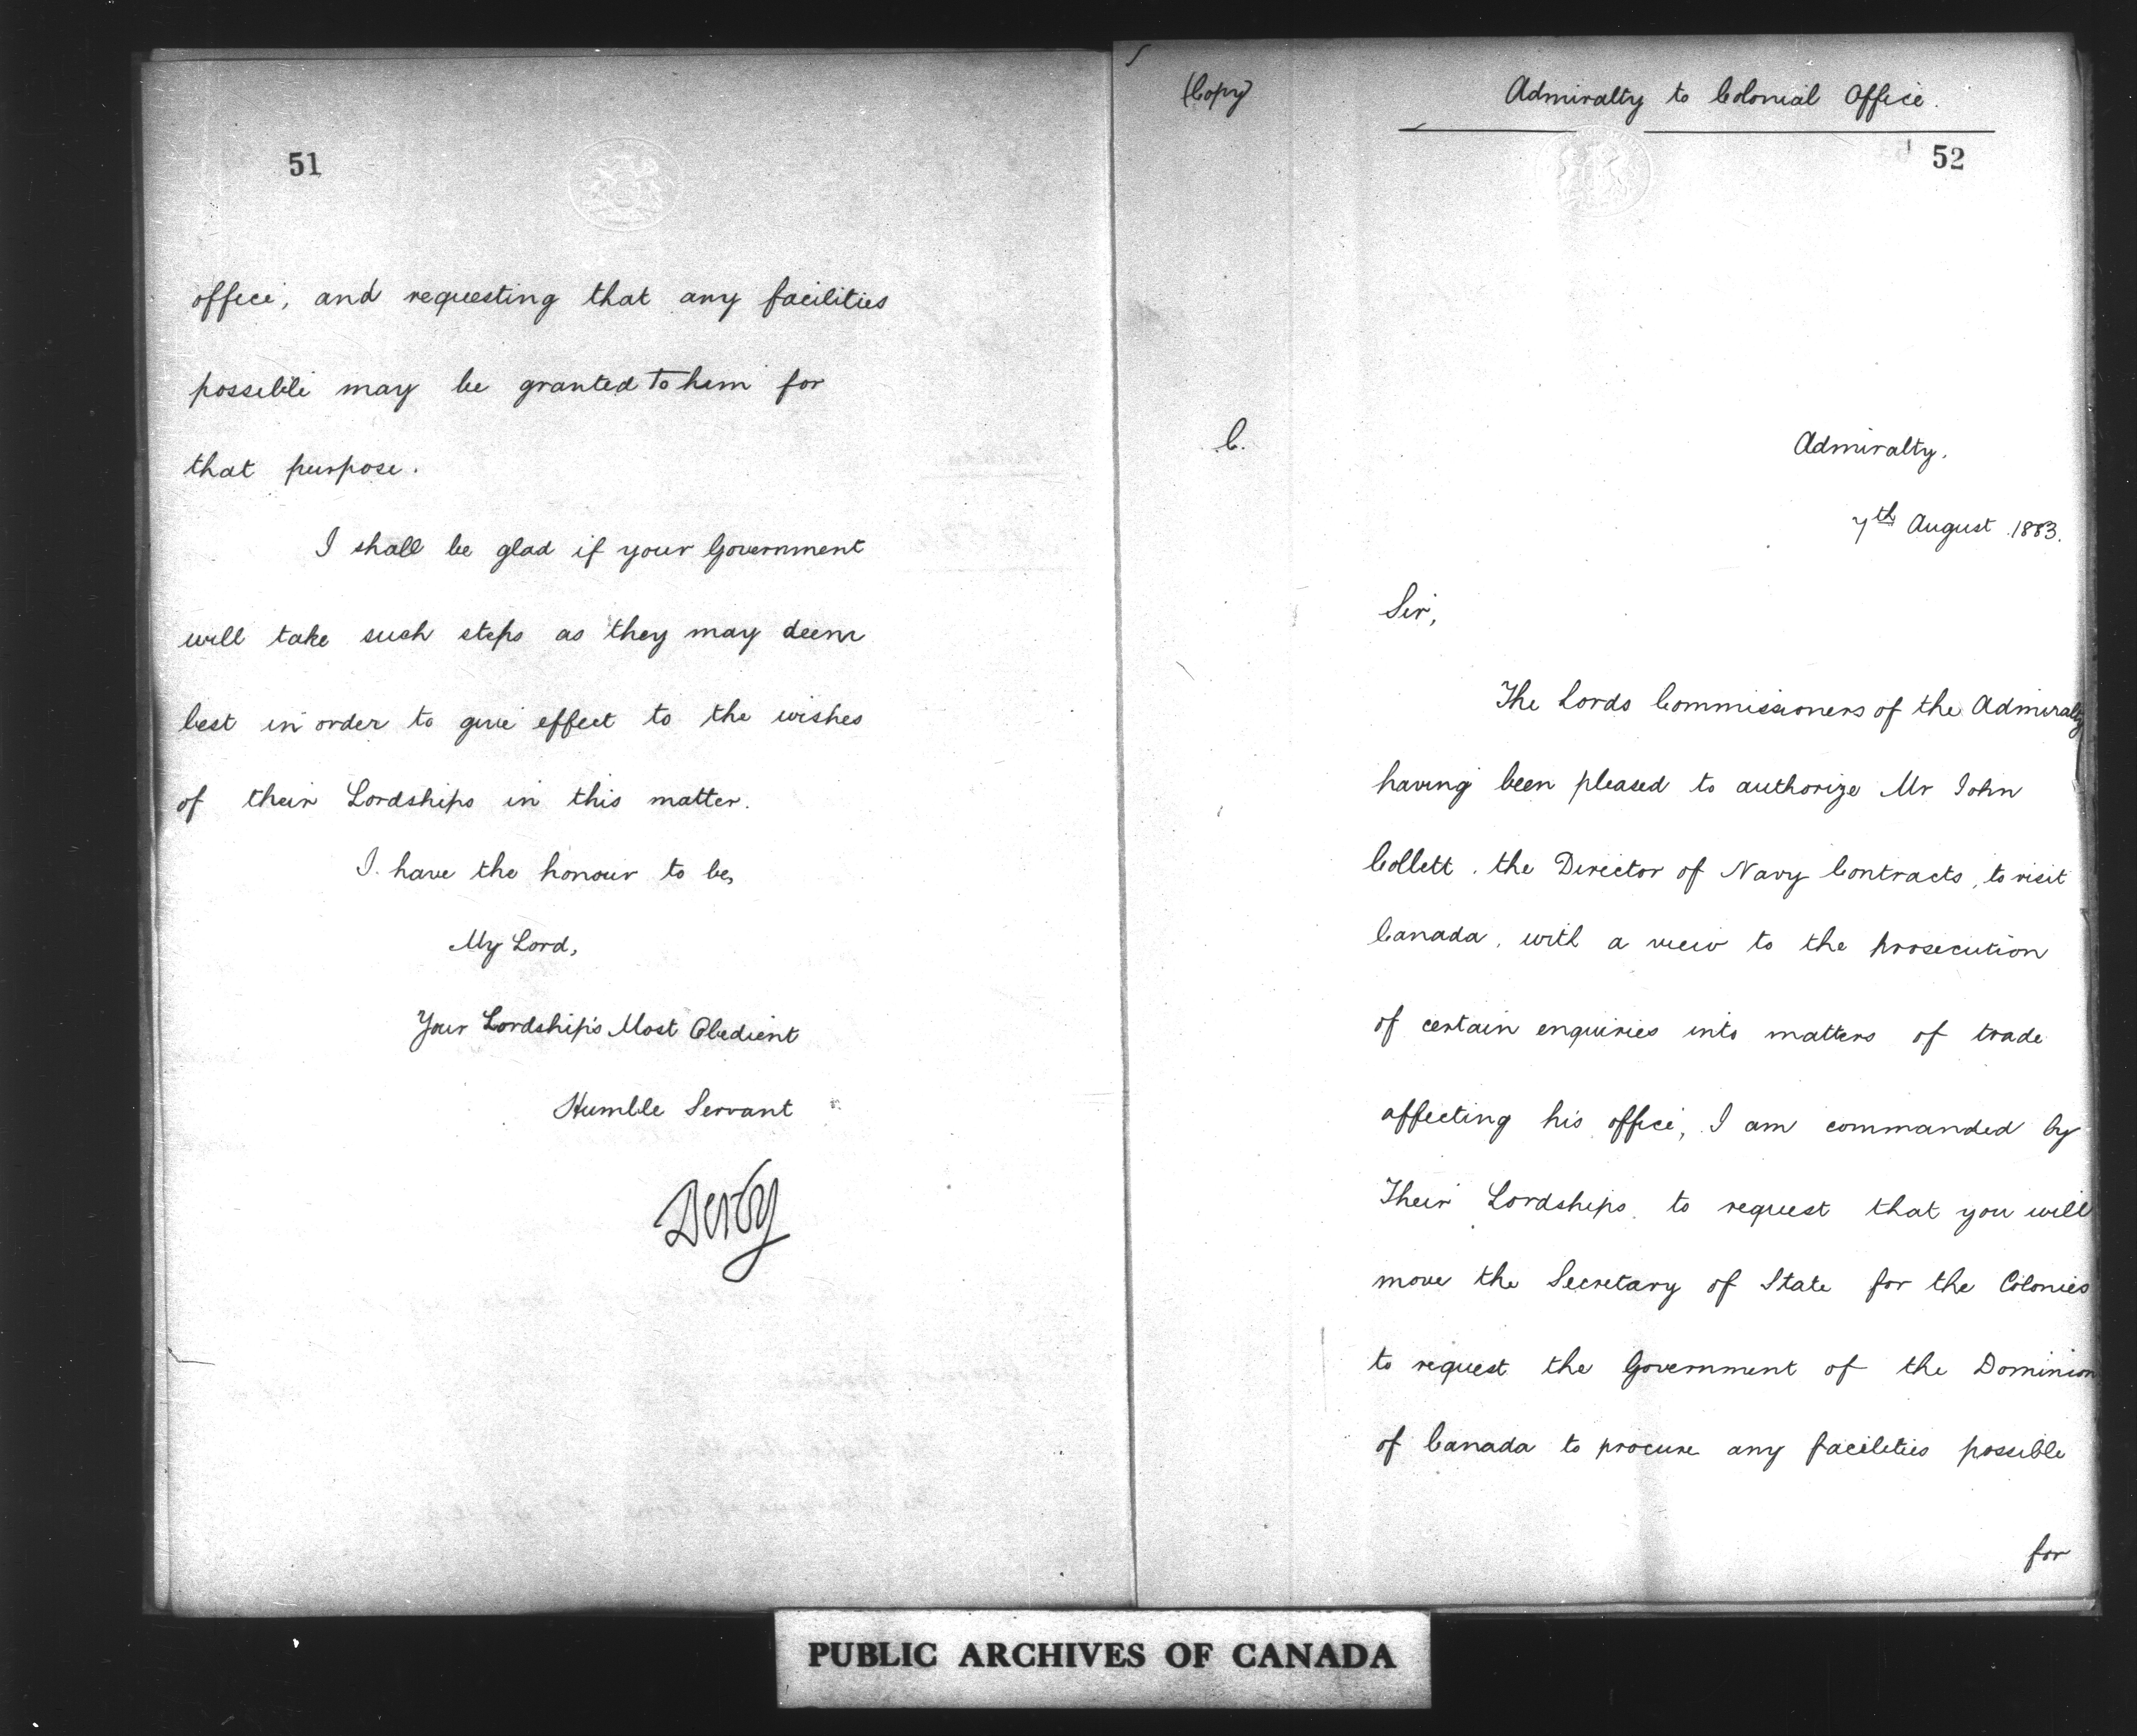 51
office, and requesting that any facilities
possible may be granted to him for
that purpose.
I shall be glad if your Government
will take such steps as they may deem
best in order to give effect to the wishes
of their Lordships in this matter.
I have the honour to be,
My Lord,
Your Lordship's Most Obedient
Humble Servant
Derby
(Copy)
Admiralty to Colonial Office.
52
C.
Admiralty,
7th August 1883.
Sir,
The Lords Commissioners of the Admiralty
having been pleased to authorize Mr John
Collett, the Director of Navy Contracts, to visit
Canada, with a view to the prosecution
of certain enquiries into matters of trade
affecting his office, I am commanded by
Their Lordships to request that you will
move the Secretary of State for the Colonies
to request the Government of the Dominion
of Canada to procure any facilities possible
for
PUBLIC ARCHIVES OF CANADA